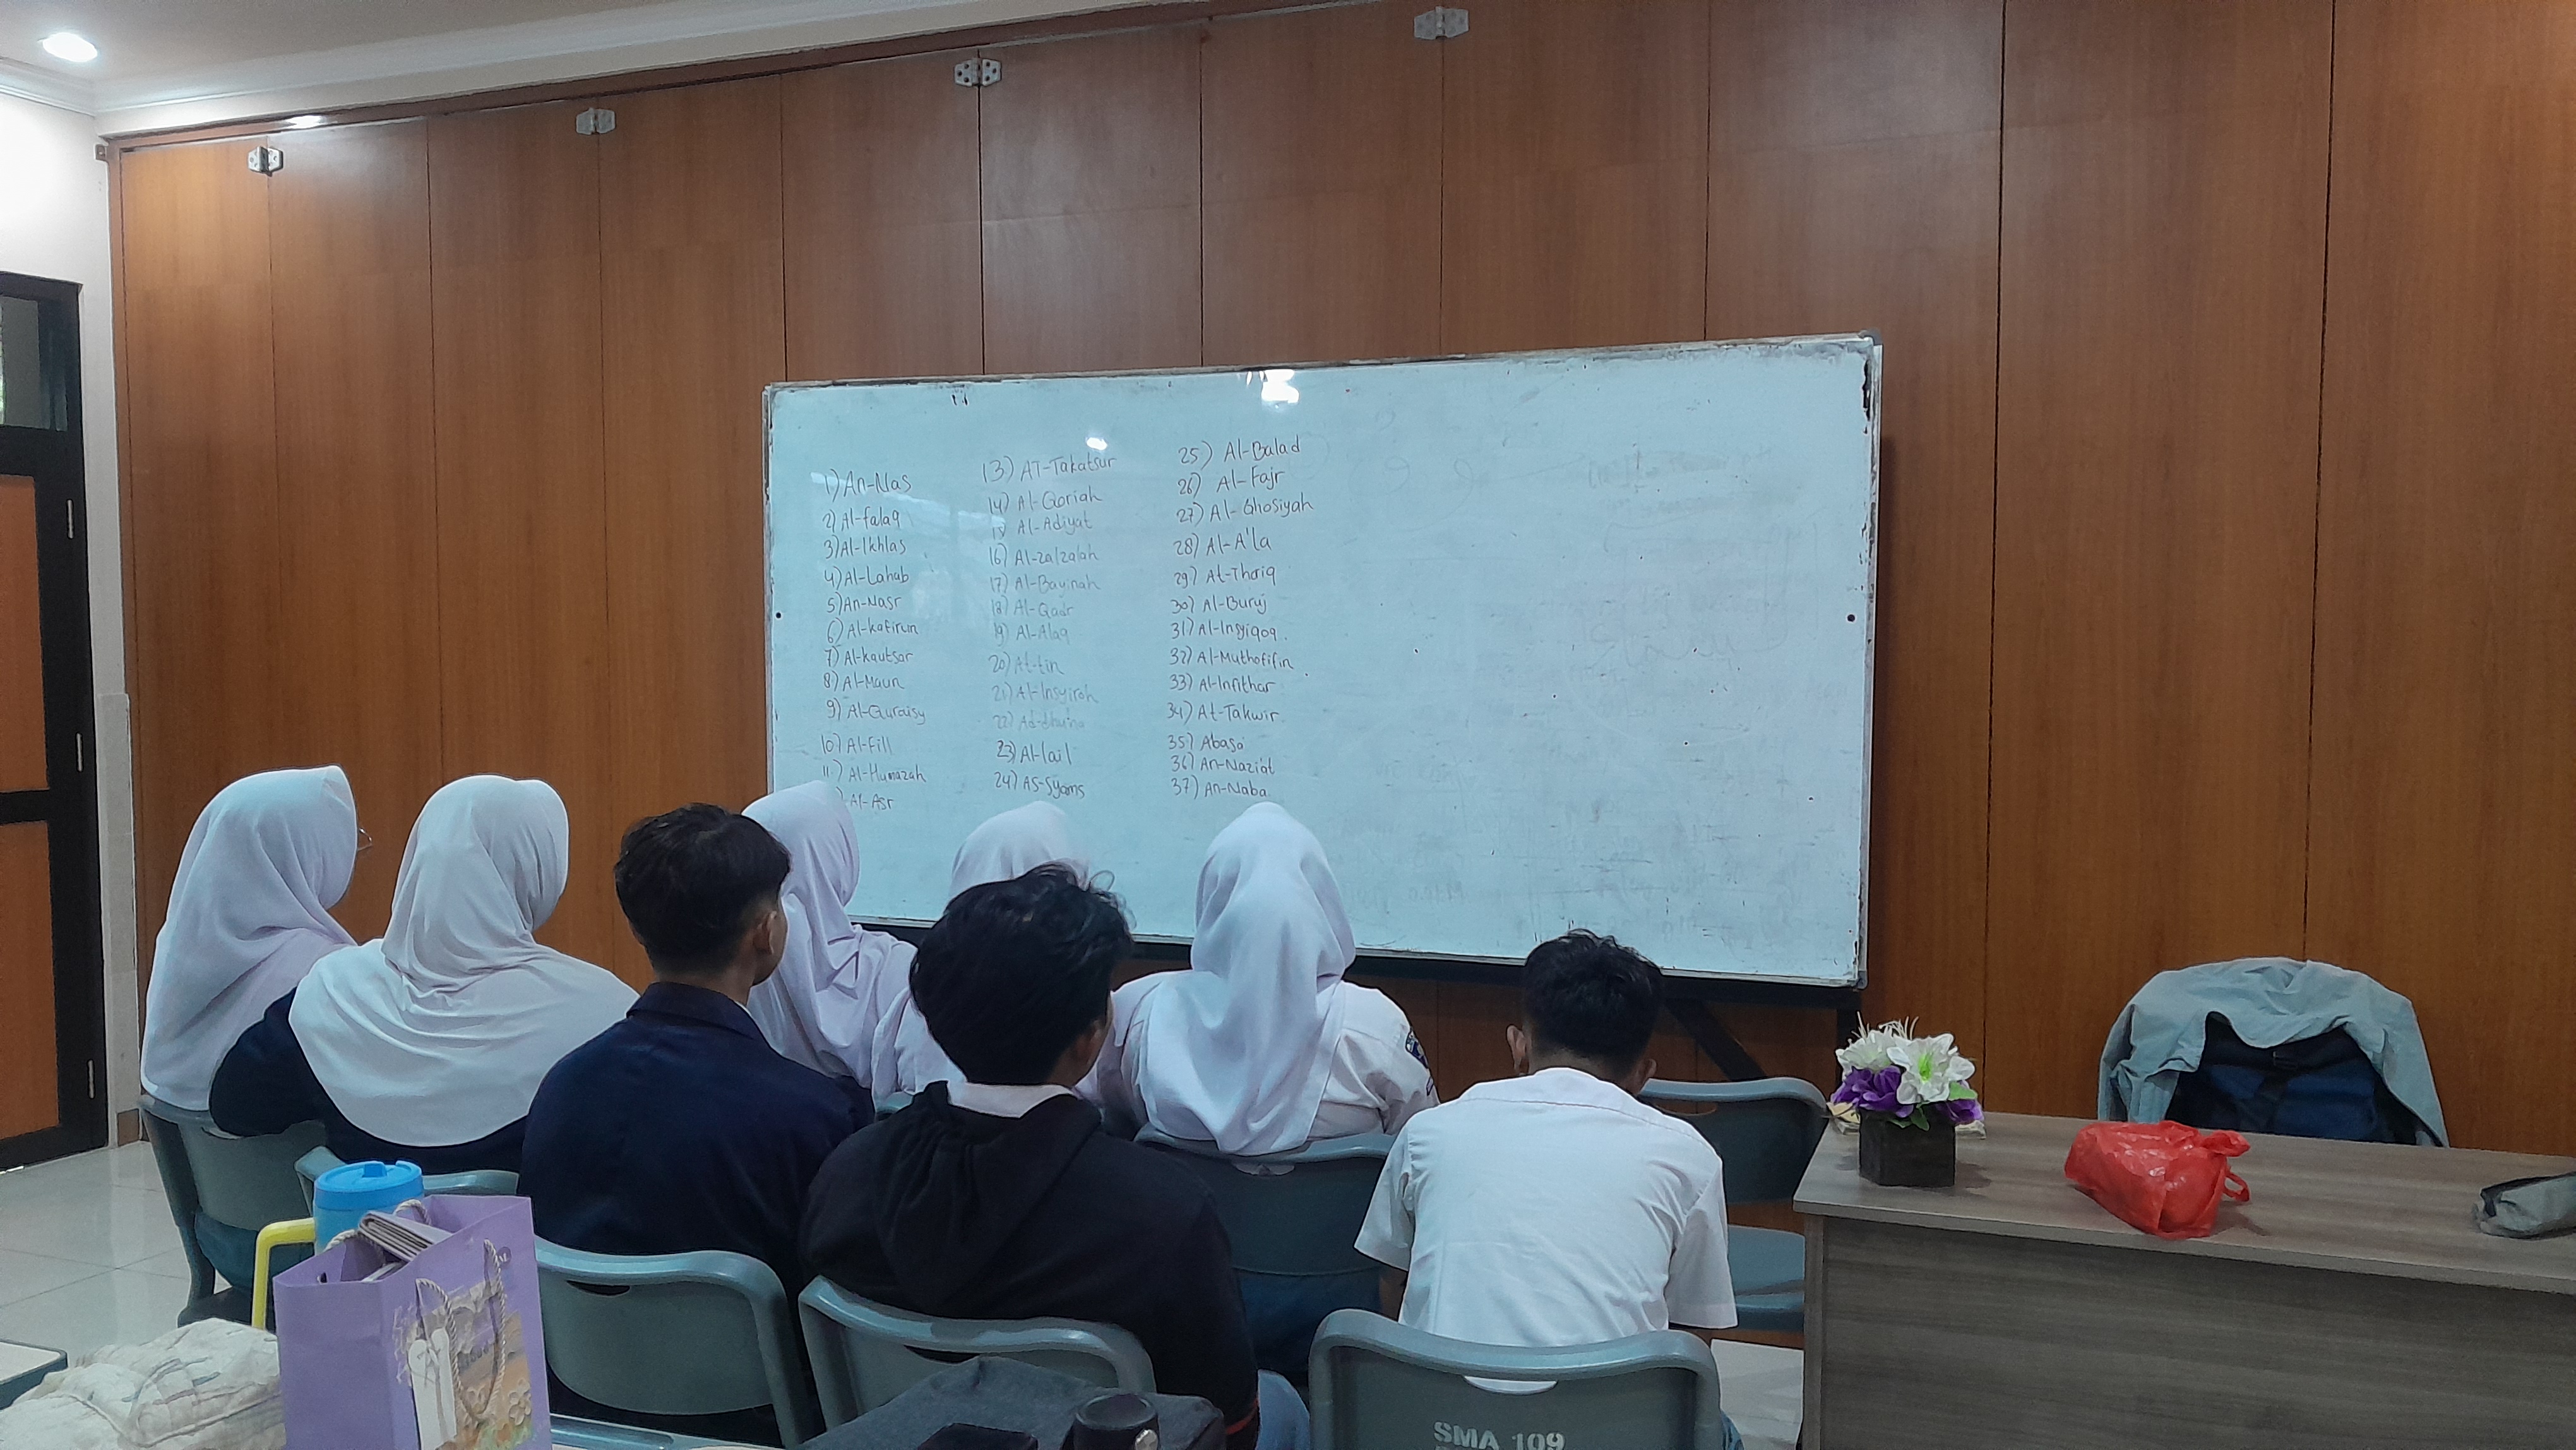 1) An-Nas
2) Al-falaq
3) Al-Ikhlas
4) Al-Lahab
5) An-Nasr
6) Al-kafirun
7) Al-kautsar
8) Al-Maun
9) Al-Quraisy
10) Al-Fill
11) Al-Humazah
) Al-Asr
13) AT-Takatsur
14) Al-Qoriah
15) Al-Adiyat
16) Al-zalzalah
17) Al-Bayinah
18) Al-Qadr
19) Al-Alaq
20) At-tin
21) Al-Insyiroh
22) Ad-dhuha
23) Al-lail
24) AS-Syams
25) Al-Balad
26) Al-Fajr
27) Al-Ghosiyah
28) Al-A'la
29) At-Thoriq
30) Al-Buruj
31) Al-Insyiqoq
32) Al-Muthofifin
33) Al-Infithar
34) At-Takwir
35) Abasa
36) An-Naziat
37) An-Naba
SMA 109